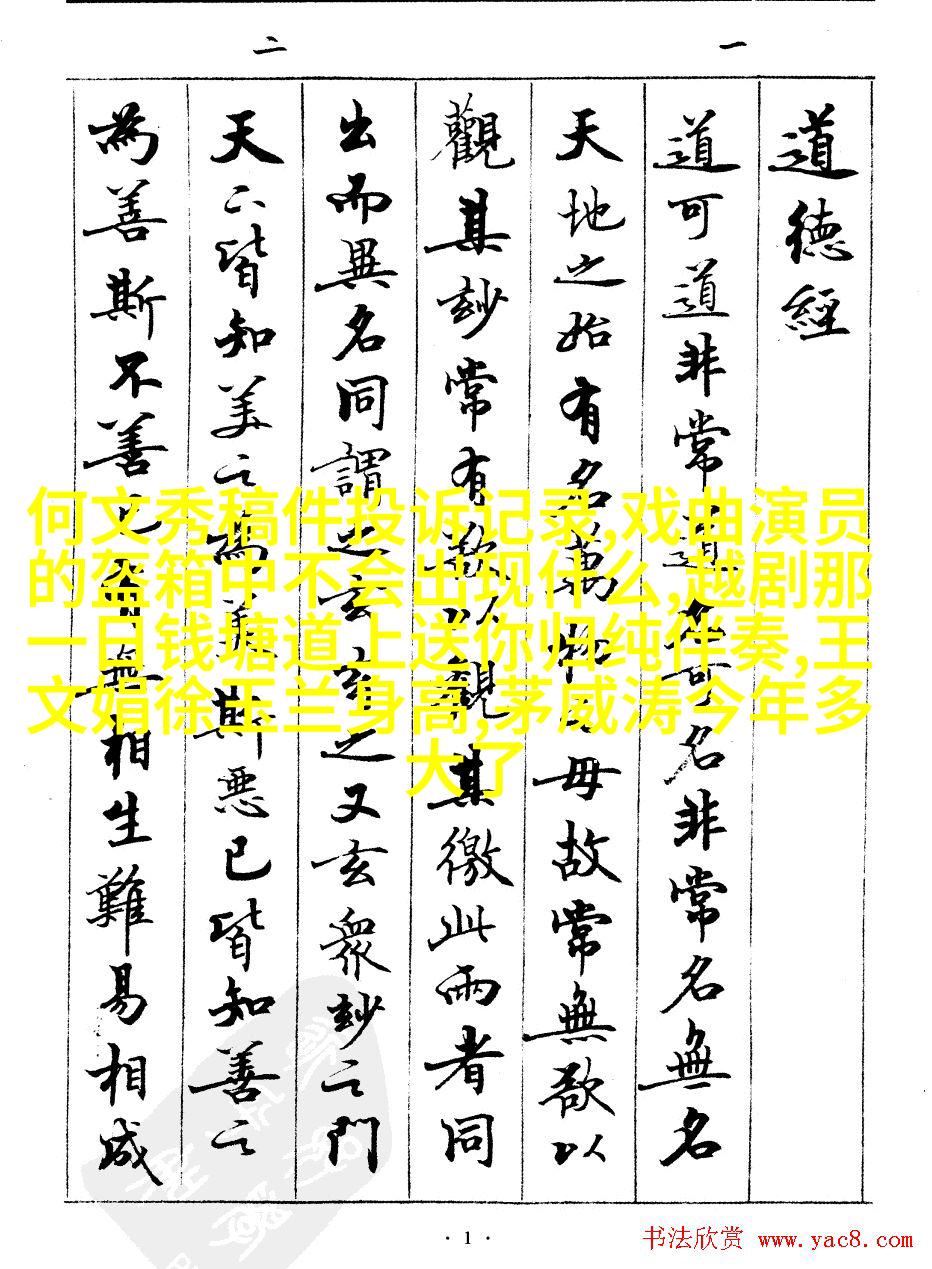 一
道德經
道可道非常道名可名非常名無名
天地之始有名萬物之母故常無欲以
觀其玅常有欲以觀其徼此兩者同
二
出而異名同謂之玄玄之又玄衆玅之門
天下皆知美之為美斯惡已皆知善之
為善斯不善已無相生難易相成
何文秀稿件投诉记录,戏曲演员
的盔箱中不会出现什么,越剧那
一日钱塘道上送你归纯伴奏,王
文娟徐玉兰身高,茅威涛今年多
大了
· 1 ·
书法欣赏 www.yac8.com